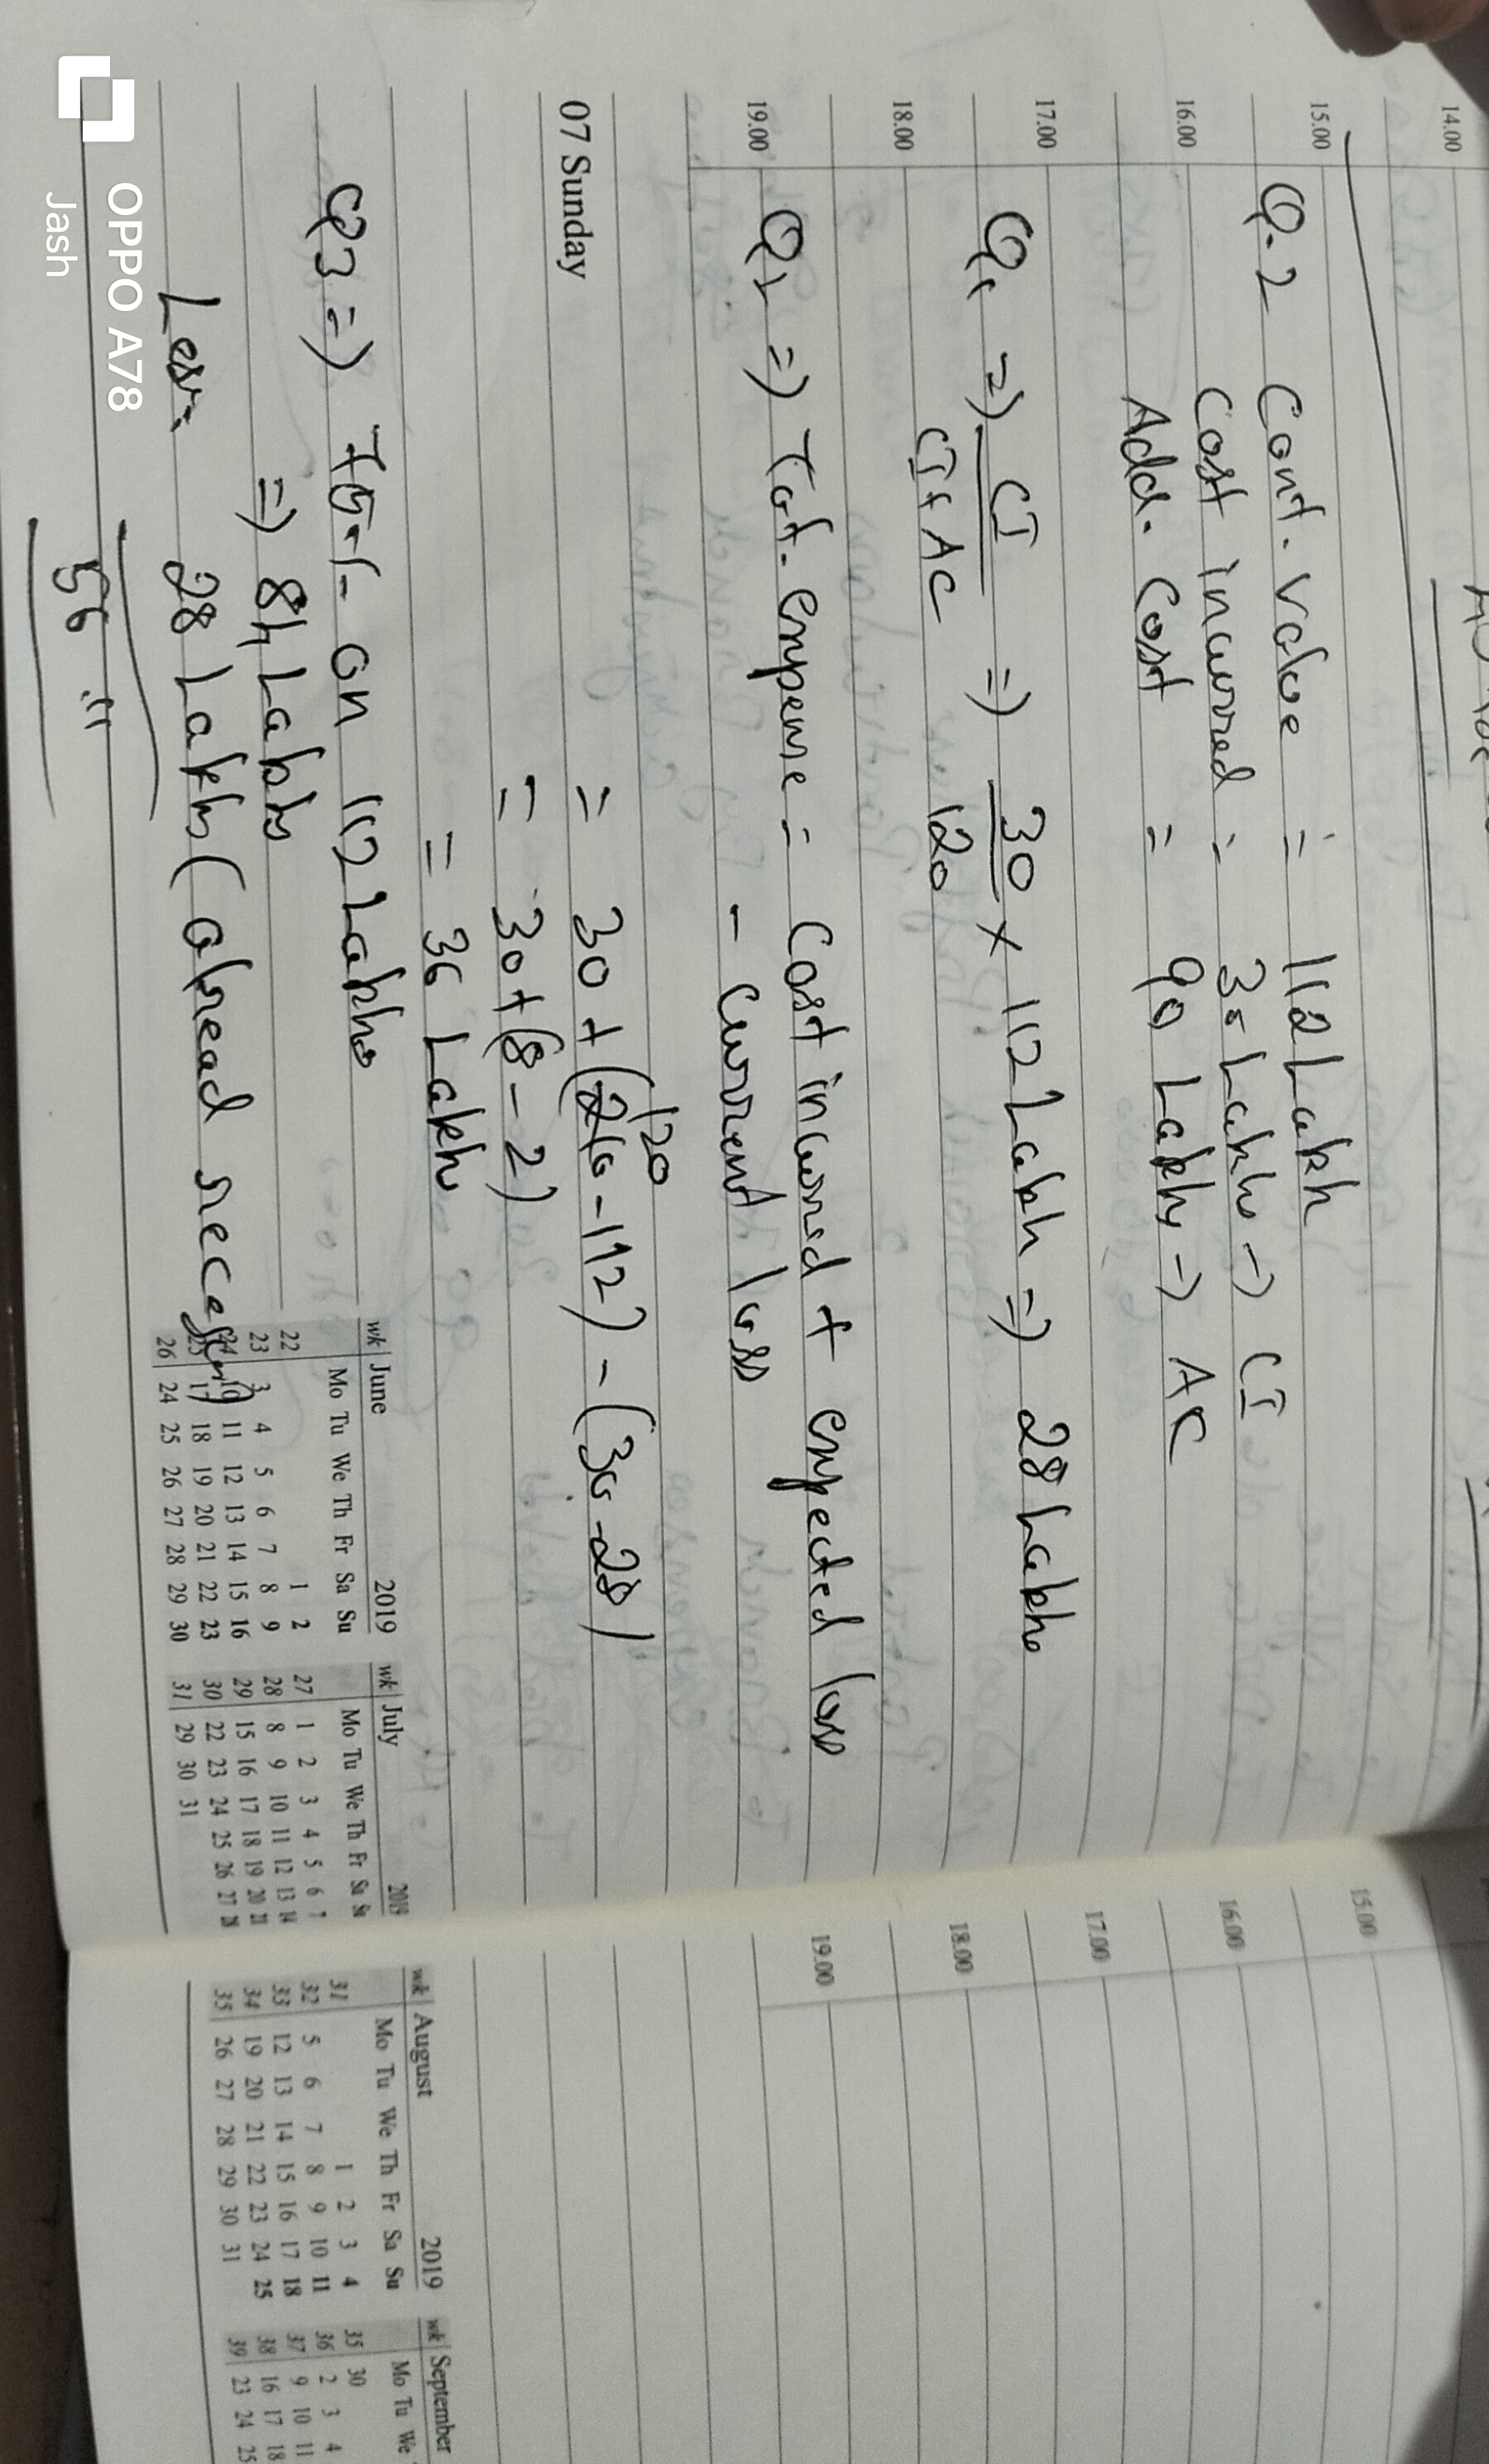 14.00
15.00
16.00
17.00
18.00
19.00
07 Sunday
Q.2 Cont. value = 112 Lakh
Cost incurred = 30 Lakhs → CI
Add. Cost = 90 Lakhs → AC
Q1 => CI / CI + AC => 30 / 120 × 112 Lakh => 28 Lakhs
Q2 => Tot. Expense = Cost incurred + expected loss
- Current loss
= 30 + (120 - 112) - (30 - 28)
= 30 + (8 - 2)
= 36 Lakhs
Q3 => 75 % on 112 Lakhs
=> 84 Lakhs
Less: 28 Lakhs (
56 "
wk June 2019
Mo Tu We Th Fr Sa Su
22 1 2
23 3 4 5 6 7 8 9
24 10 11 12 13 14 15 16
25 17 18 19 20 21 22 23
26 24 25 26 27 28 29 30
wk July 2019
Mo Tu We Th Fr Sa Su
27 1 2 3 4 5 6 7
28 8 9 10 11 12 13 14
29 15 16 17 18 19 20 21
30 22 23 24 25 26 27 28
31 29 30 31
15.00
16.00
17.00
18.00
19.00
wk August 2019
Mo Tu We Th Fr Sa Su
31 1 2 3 4
32 5 6 7 8 9 10 11
33 12 13 14 15 16 17 18
34 19 20 21 22 23 24 25
35 26 27 28 29 30 31
wk September
Mo Tu We
35 30
36 2 3 4
37 9 10 11
38 16 17 18
39 23 24 25
OPPO A78
Jash